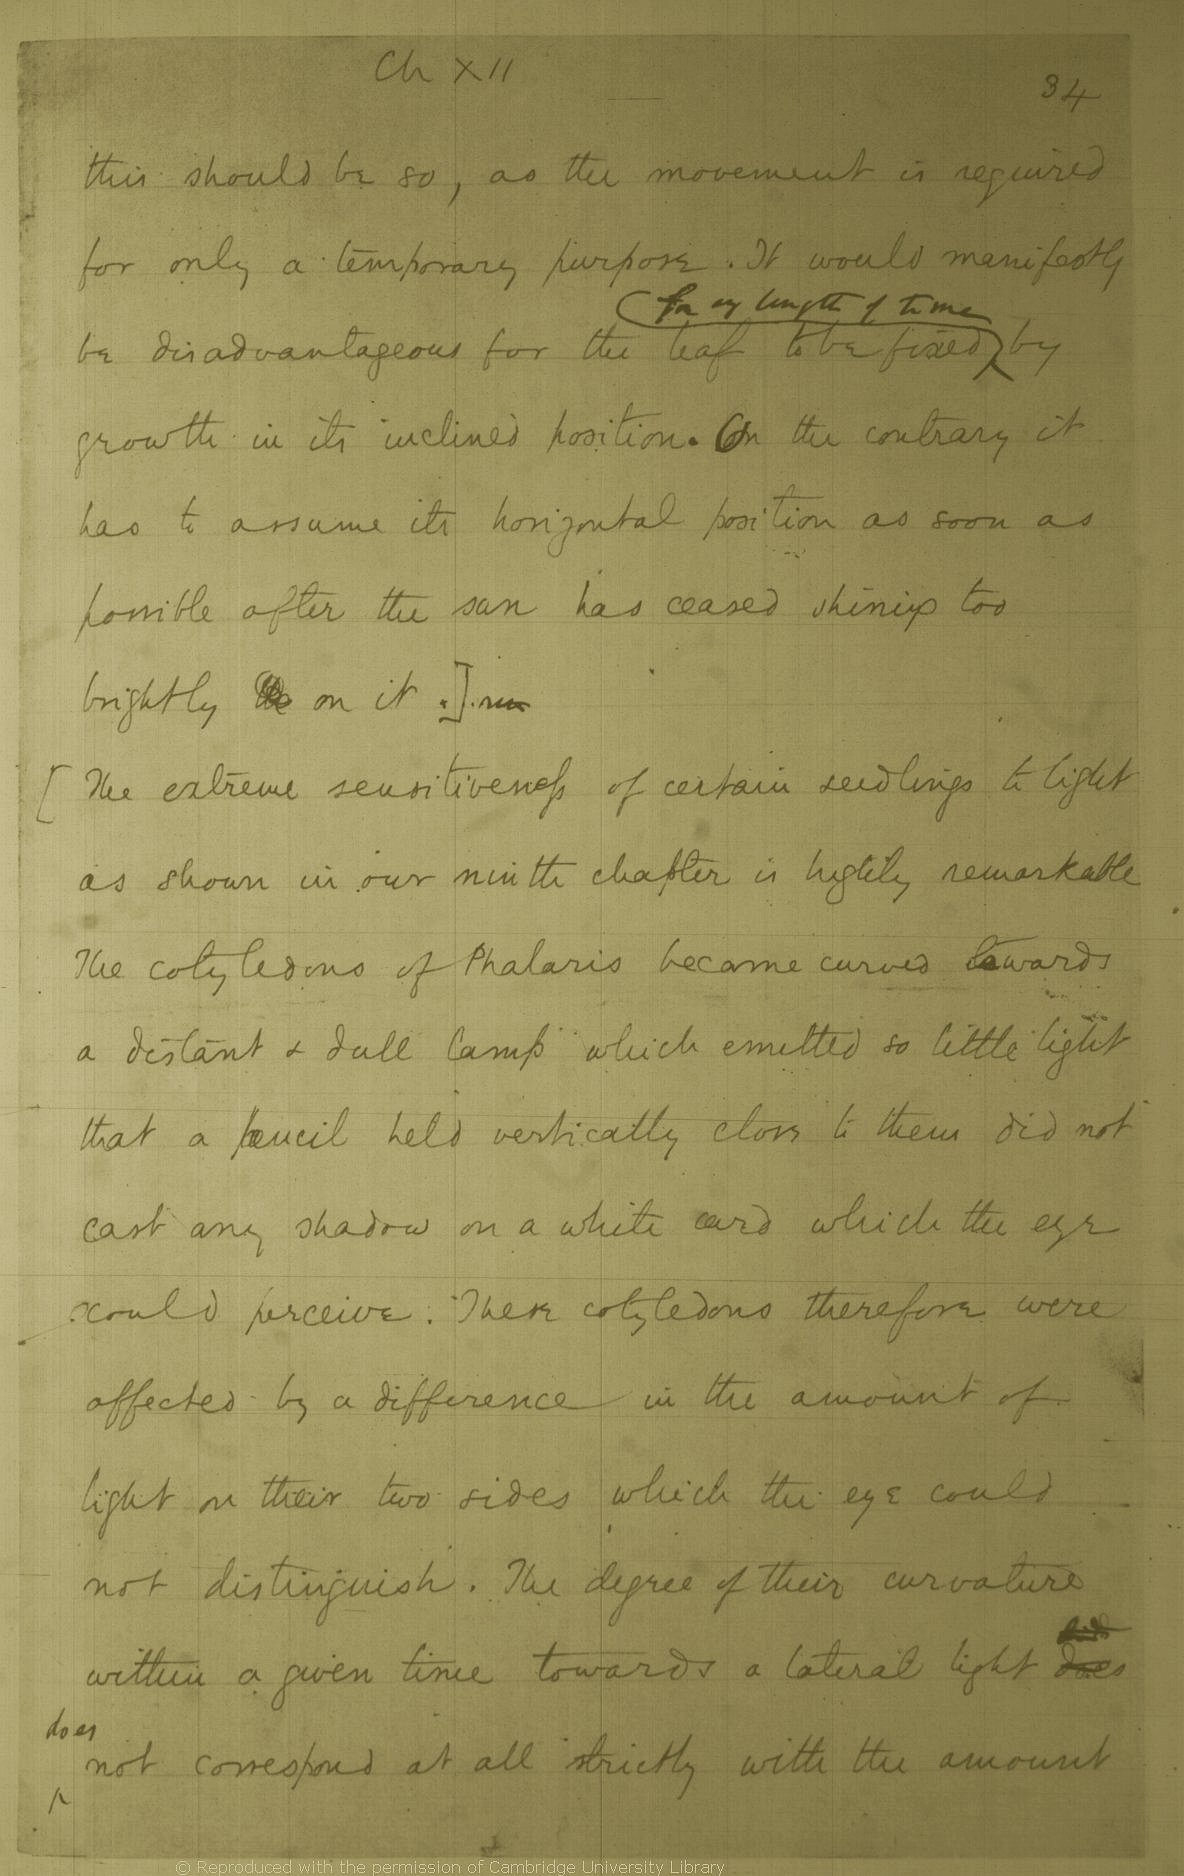 Ch XII
34
this should be so, as the movement is required
for only a temporary purpose. It would manifestly
for any length of time
be disadvantageous for the leaf to be fixed by
growth in its inclined position. On the contrary it
has to assume its horizontal position as soon as
possible after the sun has ceased shining too
brightly on it.]
[The extreme sensitiveness of certain seedlings to light
as shown in our ninth chapter is highly remarkable
The cotyledons of Phalaris became curved towards
a distant & dull lamp which emitted so little light
that a pencil held vertically close to them did not
cast any shadow on a white card which the eye
could perceive. These cotyledons therefore were
affected by a difference in the amount of
light on their two sides which the eye could
not distinguish. The degree of their curvature
did
within a given time towards a lateral light does
does
not correspond at all strictly with the amount
© Reproduced with the permission of Cambridge University Library